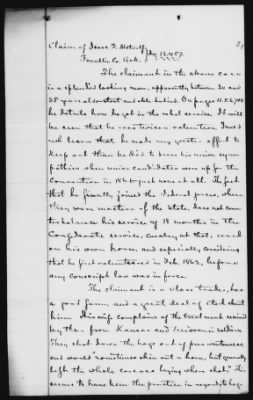 21
Claim of Isaac D. Metcalf
No. 12,457.
Franklin Co. Ark.
The claimant in the above case
is a splendid looking man, apparently between 50 and
55 years old, stout and able bodied. On pages
he details how he got in the rebel service. It will
be seen that he was twice a volunteer. I could
not learn that he made any great effort to
keep out than he did to prove his union sym-
pathies when union candidates were up for the
Convention in 1861, by not voting at all. The fact
that he finally joined the Federal forces, when
they were masters of the State, does not coun-
terbalance his service of 18 months in the
Confederate service, cavalry at that, and
on his own horse, and especially considering
that he first volunteered in Feb. 1862, before
any conscript law was in force.
The claimant is a close trader, has
a good farm, and a great deal of stock about
him. His wife complains of the treatment received
by the from Kansas and Missouri soldiers.
They shot down the hogs out of pure wantonness
and would "sometimes skin out a ham, but generally
left the whole carcass laying when shot." This
seems to have been the practice in regard to hog-